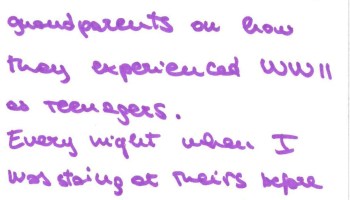 grandparents on how
they experienced WW11
as teenagers.
Every night when I
was staing at theirs before